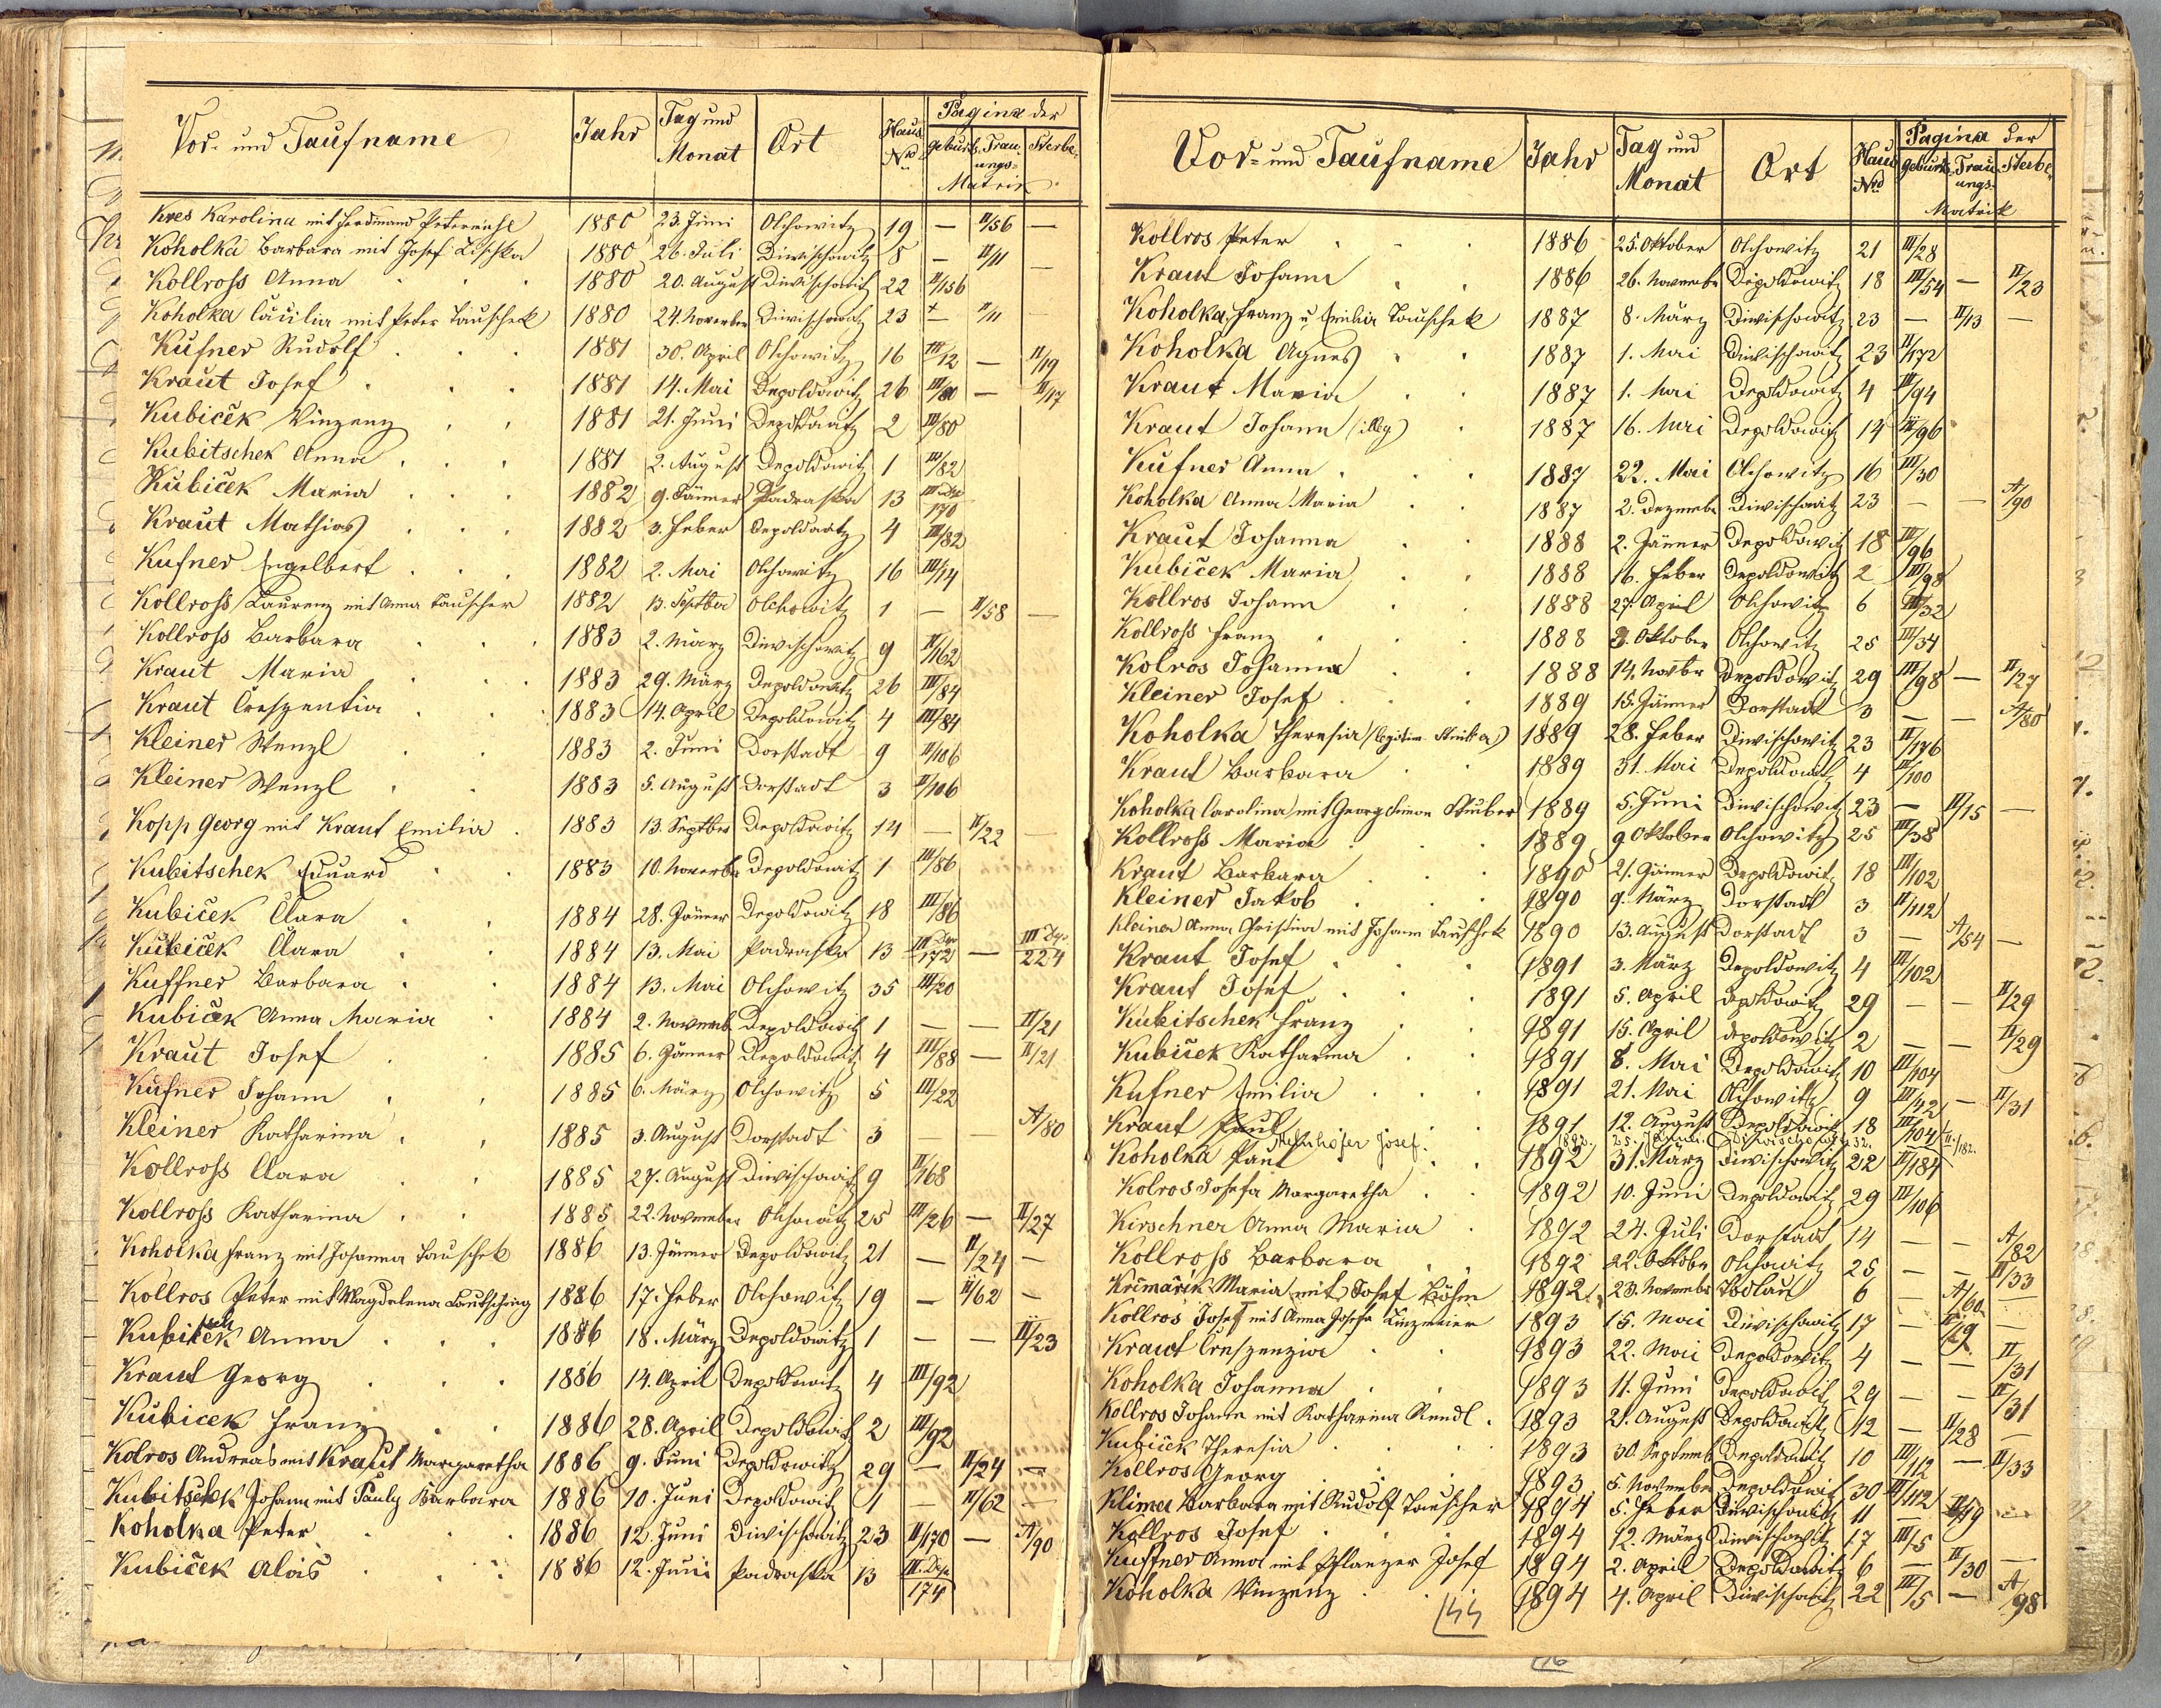 Vor- und Taufname Jahr Tag und Monat Ort Haus Nro Pagina der Geburts- Trauungs- Sterbe- Matrik
Kres Karolina mit Ferdinand 1880 23. Juni Olchowitz 19 — II/56 —
Koholka Barbara mit Josef Lischka 1880 26. Juli Diwischowitz 8 — II/11 —
Kollross Anna 1880 20. August Diwischowitz 22 II/156
Koholka Cäcilia mit Peter Tauschek 1880 24. November Diwischowitz 23 — II/11 —
Kufner Rudolf 1881 30. April Olchowitz 16 III/12 — II/19
Kraut Josef 1881 14. Mai Depoldowitz 26 III/80 — II/17
Kubiček Vinzenz 1881 21. Juni Depoldowitz 2 III/80
Kubitschek Anna 1881 2. August Depoldowitz 1 III/82
Kubiček Maria 1882 9. Jänner Padraska 13 III 170
Kraut Mathias 1882 3. Feber Depoldowitz 4 III/82
Kufner Engelbert 1882 2. Mai Olchowitz 16 III/14
Kollross Laurenz mit Anna Tauscher 1882 13. Septber Olchowitz 1 — II/58 —
Kollross Barbara 1883 2. März Diwischowitz 9 II/162
Kraut Maria 1883 29. März Depoldowitz 26 III/84
Kraut Creszentia 1883 14. April Depoldowitz 4 III/84
Kleiner Wenzl 1883 2. Juni Dorstadt 9 II/106
Kleiner Wenzl 1883 5. August Dorstadt 3 II/106
Kopp Georg mit Kraut Emilia 1883 13. Septber Depoldowitz 14 — II/22 —
Kubitschek Eduard 1883 10. Novembr Depoldowitz 1 III/86
Kubiček Clara 1884 28. Jänner Depoldowitz 18 III/86
Kubiček Clara 1884 13. Mai Padraska 13 III 172 — III 224
Kuffner Barbara 1884 13. Mai Olchowitz 35 III/20
Kubiček Anna Maria 1884 2. Novemb. Depoldowitz 1 — — II/21
Kraut Josef 1885 6. Jänner Depoldowitz 4 III/88 — II/21
Kufner Johann 1885 6. März Olchowitz 5 III/22
Kleiner Katharina 1885 3. August Dorstadt 3 — — A/80
Kollross Clara 1885 27. August Diwischowitz 9 II/168
Kollross Katharina 1885 22. November Olchowitz 25 III/26 — II/27
Koholka Franz mit Johanna Tauschek 1886 13. Jänner Depoldowitz 21 — II/24 —
Kollros Peter mit Magdalena 1886 17. Feber Olchowitz 19 — II/62 —
Kubitschek Anna 1886 18. März Depoldowitz 1 — — II/23
Kraut Georg 1886 14. April Depoldowitz 4 III/92
Kubicek Franz 1886 28. April Depoldowitz 2 III/92
Kolros Andreas mit Kraut Margaretha 1886 9. Juni Depoldowitz 29 — II/24 —
Kubitschek Johann mit Pauly Barbara 1886 10. Juni Depoldowitz 1 — II/62 —
Koholka Peter 1886 12. Juni Diwischowitz 23 II/170 — A/90
Kubiček Alois 1886 12. Juni Padraska 13 III. 174
Vor- und Taufname Jahr Tag und Monat Ort Haus Nro Pagina der Geburts- Trauungs- Sterbe- Matrik
Kollros Peter 1886 25. Oktober Olchowitz 21 III/28
Kraut Johann 1886 26. Novembr Depoldowitz 18 III/54 — II/23
Koholka Franz u. Emilia Tauschek 1887 8. März Diwischowitz 23 — II/13 —
Koholka Agnes 1887 1. Mai Diwischowitz 23 II/172
Kraut Maria 1887 1. Mai Depoldowitz 4 III/94
Kraut Johann (illeg) 1887 16. Mai Depoldowitz 14 III/96
Kufner Anna 1887 22. Mai Olchowitz 16 III/30
Koholka Anna Maria 1887 2. Dezembr Diwischowitz 23 — — A/90
Kraut Johanna 1888 2. Jänner Depoldowitz 18 III/96
Kubiček Maria 1888 16. Feber Depoldowitz 2 III/98
Kollros Johann 1888 27. April Olchowitz 6 III/32
Kollross Franz 1888 3. Oktober Olchowitz 25 III/34
Kolros Johanna 1888 14. Novbr Depoldowitz 29 III/98 — II/27
Kleiner Josef 1889 15. Jänner Dorstadt 3 — — A/80
Koholka Theresia (legitim. ) 1889 28. Feber Diwischowitz 23 II/176
Kraut Barbara 1889 31. Mai Depoldowitz 4 III/100
Koholka Carolina mit Georg Simon Stuiber 1889 5. Juni Diwischowitz 23 — II/15 —
Kollross Maria 1889 9 Oktober Olchowitz 25 III/38
Kraut Barbara 1890 21. Jänner Depoldowitz 18 III/102
Kleiner Jakob 1890 9. März Dorstadt 3 II/112
Kleiner Anna Christina mit Johann Tauschek 1890 13. August Dorstadt 3 — A/54 —
Kraut Josef 1891 3. März Depoldowitz 4 III/102
Kraut Josef 1891 5. April Depoldowitz 29 — — II/29
Kubitschek Franz 1891 15. April Depoldowitz 2 — — II/29
Kubiček Katharina 1891 8. Mai Depoldowitz 10 III/104
Kufner Emilia 1891 21. Mai Olchowitz 9 III/42 — II/31
Kraut Paul 1891 12. August Depoldowitz 18 III/104
Josef. 1892. 25. Diwischowitz 32. II./182.
Koholka Paul 1892 31. März Diwischowitz 22 II/184
Kolros Josefa Margaretha 1892 10. Juni Depoldowitz 29 III/106
Kirschner Anna Maria 1892 24. Juli Dorstadt 14 — — A/82
Kollross Barbara 1892 22. Oktobr Olchowitz 25 — — II/33
Krčmařik Maria mit Josef Böhm 1892 23. Novembr 6 — A/60 —
Kollros Josef mit Anna Josefa Linzmeier 1893 15. Mai Diwischowitz 17 — II/19 —
Kraut Creszenzia 1893 22. Mai Depoldowitz 4 — — II/31
Koholka Johanna 1893 11. Juni Depoldowitz 29 — — II/31
Kollros Johann mit Katharina Rendl 1893 21. August Depoldowitz 12 — II/28 —
Kubiček Theresia 1893 30. Septemb Depoldowitz 10 III/112 — II/33
Kollros Georg 1893 5. November Depoldowitz 30 III/112
Klima Barbara mit Rudolf Tauscher 1894 5. Feber Diwischowitz 11 — II/19
Kollros Josef 1894 12. März Diwischowitz 17 III/5
Kuffner Anna mit Pflanzer Josef 1894 2. April Depoldowitz 6 — II/30 —
Koholka Vinzenz 1894 4. April Diwischowitz 22 III/5 — A/98